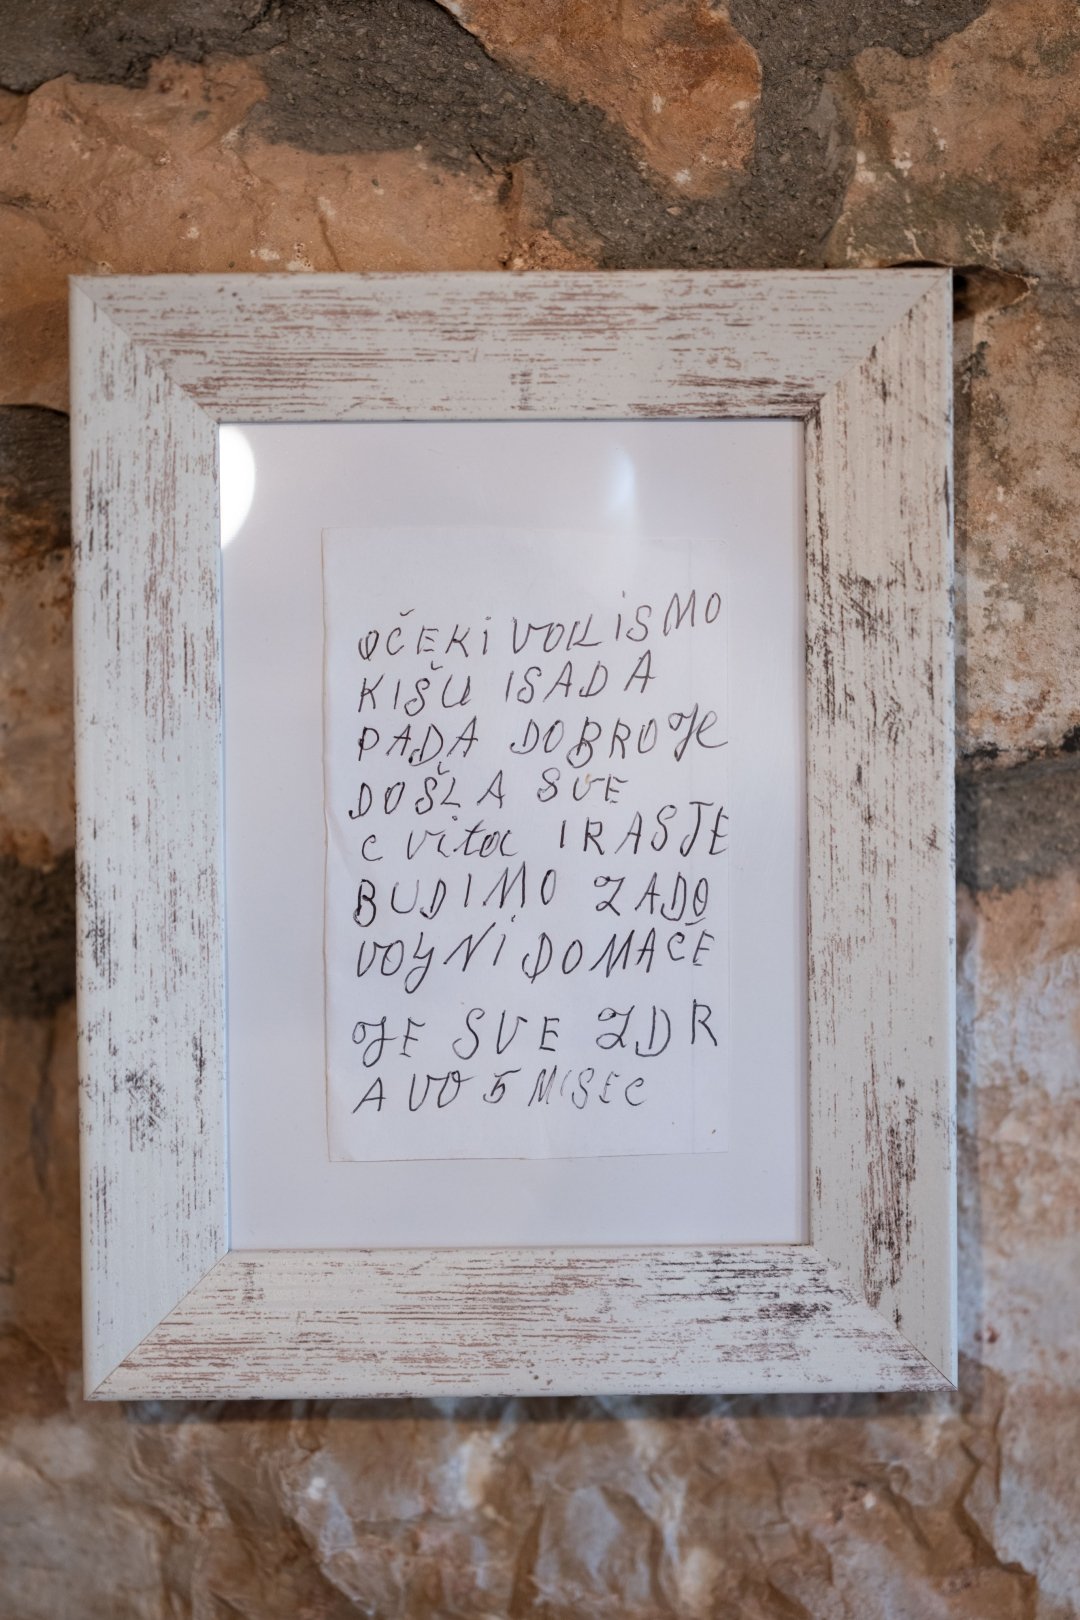 OČEKiVOLISMO
KIŠU ISADA
PADA DOBROJE
DOŠLA SVE
cvita IRASTE
BUDIMO ZADO
VOLJNI DOMAČE
JE SVE ZDR
AVO 5 MISEC